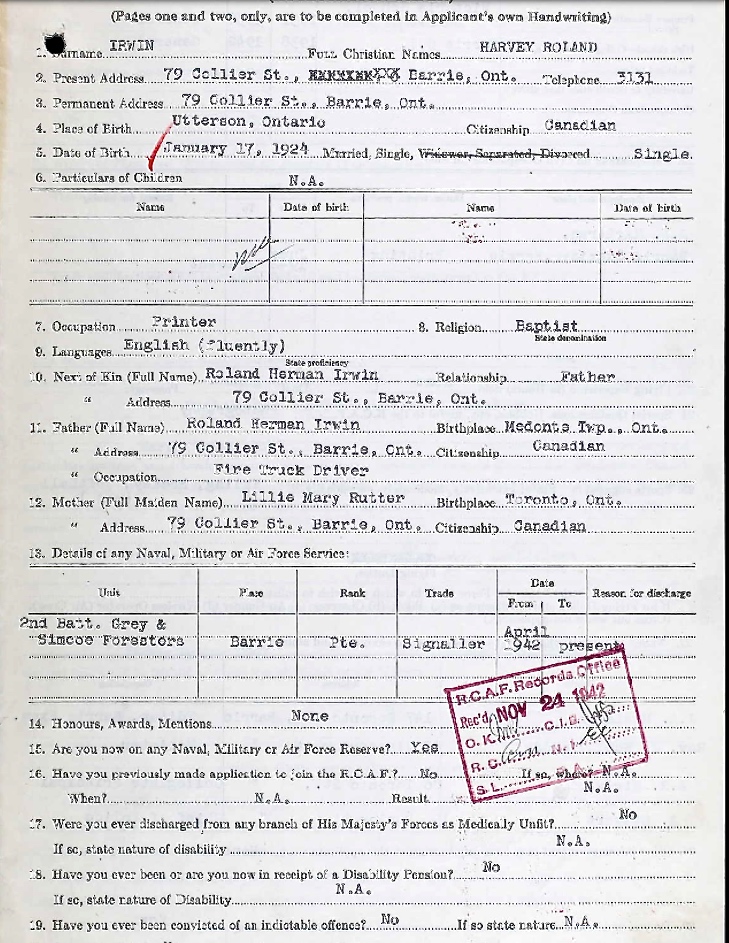 (Pages one and two, only, are to be completed in Applicant's own Handwriting)
1. Surname IRWIN Full Christian Names HARVEY ROLAND
2. Present Address 79 Collier St., Barrie, Ont. Telephone 3131
3. Permanent Address 79 Collier St., Barrie, Ont.
4. Place of Birth Utterson, Ontario Citizenship Canadian
5. Date of Birth January 17, 1924 Married, Single, Widower, Separated, Divorced Single.
6. Particulars of Children N.A.
Name Date of birth Name Date of birth
7. Occupation Printer 8. Religion Baptist
State denomination
9. Languages English (fluently)
State proficiency
10. Next of Kin (Full Name) Roland Herman Irwin Relationship Father
" Address 79 Collier St., Barrie, Ont.
11. Father (Full Name) Roland Herman Irwin Birthplace Medonte Twp., Ont.
" Address 79 Collier St., Barrie, Ont. Citizenship Canadian
" Occupation Fire Truck Driver
12. Mother (Full Maiden Name) Lillie Mary Rutter Birthplace Toronto, Ont.
" Address 79 Collier St., Barrie, Ont. Citizenship Canadian
13. Details of any Naval, Military or Air Force Service:
Unit Place Rank Trade Date Reason for discharge
From To
2nd Batt. Grey &
Simcoe Forestors Barrie Pte. Signaller April 1942 present
R.C.A.F. Records Office
Rec'd NOV 24 1942
O.K. C.I.B.
R.C. N.I.
S.L. P.A.
14. Honours, Awards, Mentions None
15. Are you now on any Naval, Military or Air Force Reserve? Yes
16. Have you previously made application to join the R.C.A.F.? No If so, where? N.A.
When? N.A. Result N.A.
17. Were you ever discharged from any branch of His Majesty's Forces as Medically Unfit? No
If so, state nature of disability N.A.
18. Have you ever been or are you now in receipt of a Disability Pension? No
If so, state nature of Disability N.A.
19. Have you ever been convicted of an indictable offence? No If so state nature N.A.